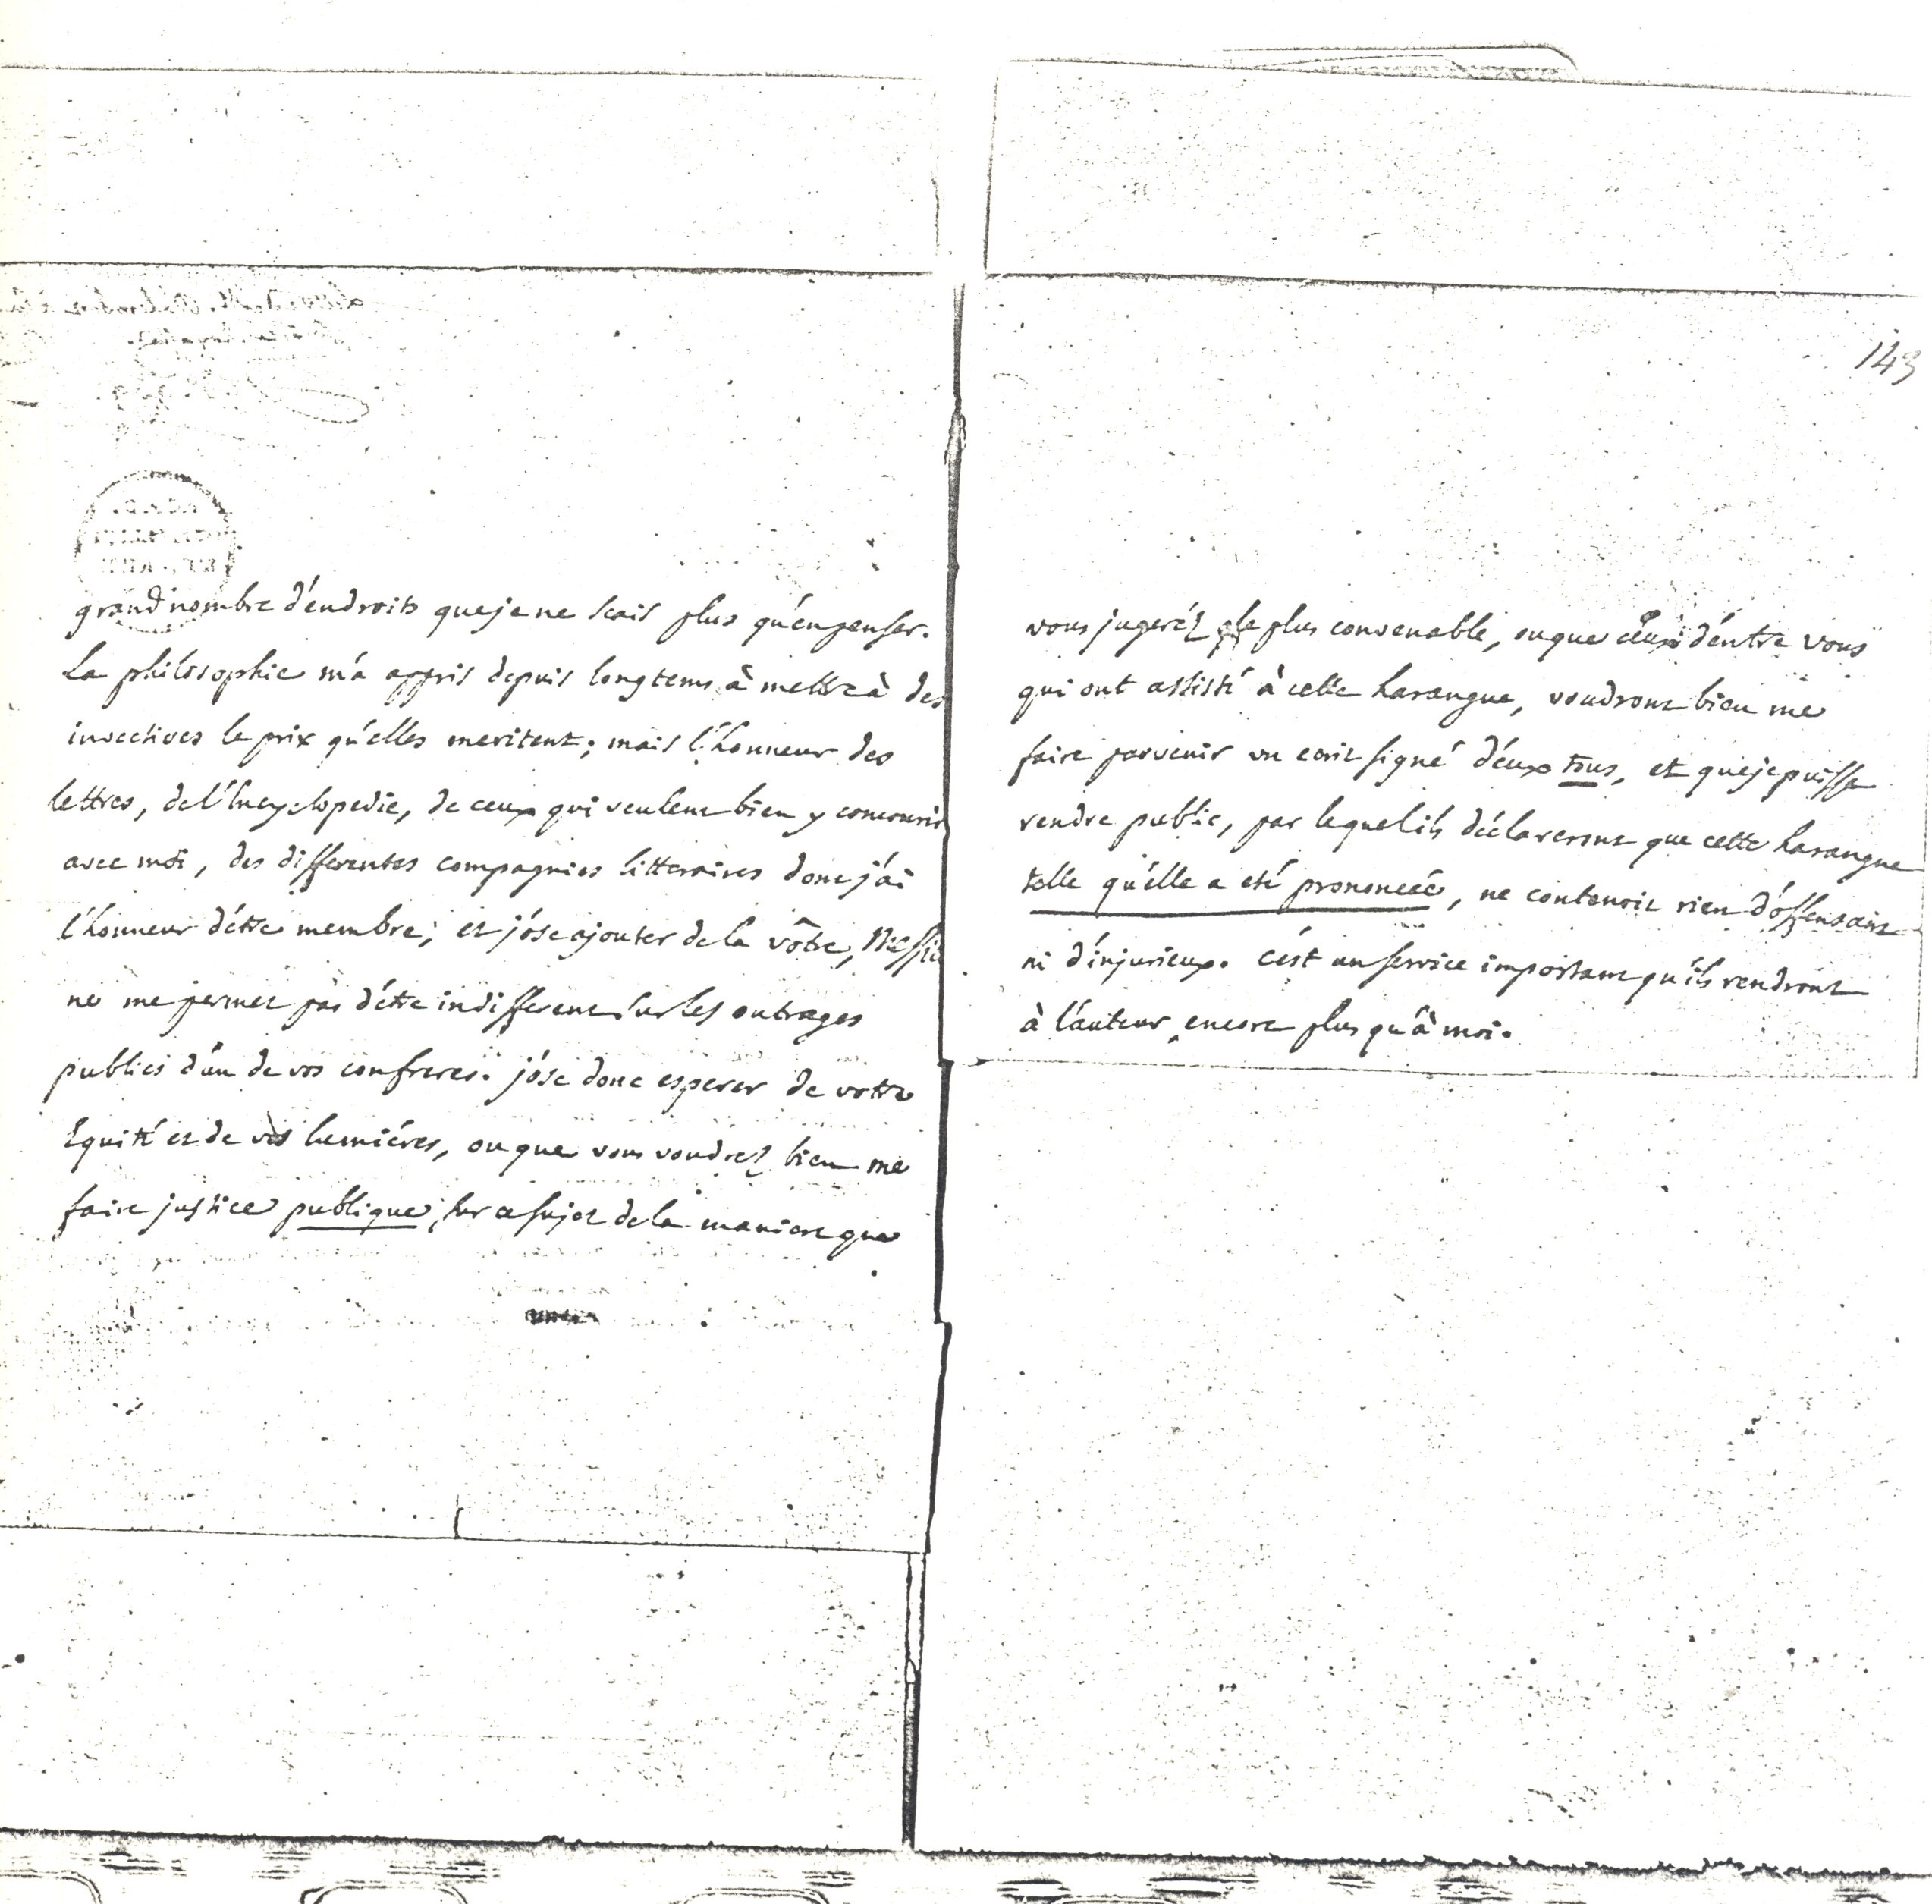 grand nombre d'éndroits que je ne scais plus qu'én penser.
La philosophie m'á appris depuis longtems à mettre à des
invectives le prix qu'élles meritent; mais l'honneur des
lettres, de l'Encyclopedie, de ceux qui veulent bien y concourir
avec moi, des differentes compagnies litteraires dont j'ái
l'honneur d'étre membre; et j'óse ajouter de la vôtre, Messie
ne me permet pas d'étre indifferent sur les outrages
publics d'ún de vos confreres. j'óse donc esperer de votre
Equité et de vos lumiéres, ou que vous voudrez bien me
faire justice publique, sur ce sujet de la maniere que
143
vous jugeréz le plus convenable, ou que ceux d'éntre vous
qui ont assisté à cette harangue, voudront bien me
faire parvenir un ecrit signé d'éux tous, et que je puisse
rendre public, par lequel ils déclareront que cette harangue
telle qu'élle a eté prononcée, ne contenoit rien d'óffensant
ni d'injurieux. c'ést un service important qu'ils rendront
à l'áuteur encore plus qu'à moi.